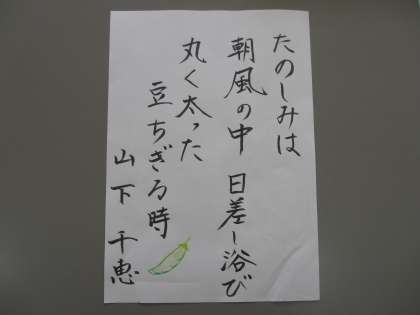 たのしみは
朝風の中 日差し浴び
丸く太った
豆ちぎる時
山下 千恵